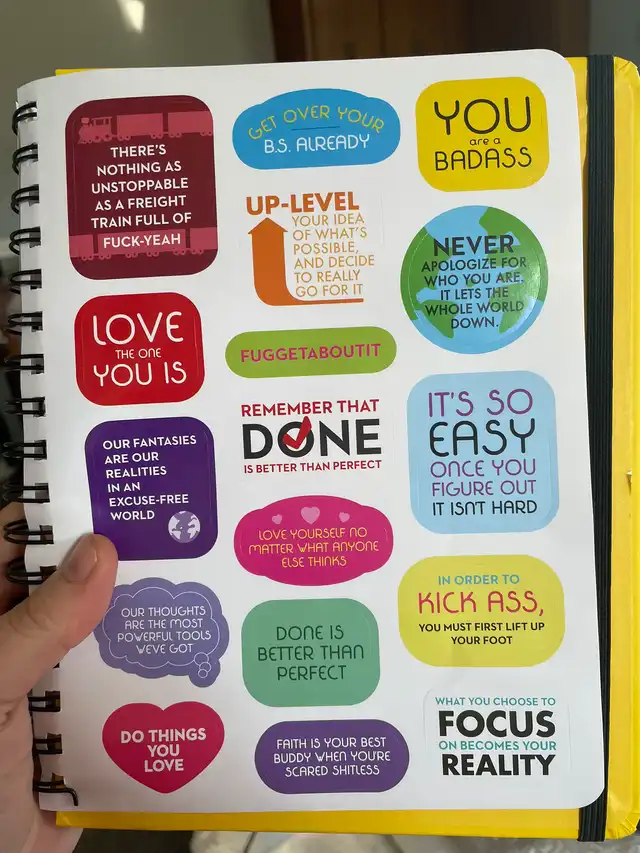 THERE'S
NOTHING AS
UNSTOPPABLE
AS A FREIGHT
TRAIN FULL OF
FUCK-YEAH
LOVE
THE ONE
YOU IS
OUR FANTASIES
ARE OUR
REALITIES
IN AN
EXCUSE-FREE
WORLD
OUR THOUGHTS
ARE THE MOST
POWERFUL TOOLS
WE'VE GOT
DO THINGS
YOU
LOVE
GET OVER YOUR
B.S. ALREADY
UP-LEVEL
YOUR IDEA
OF WHAT'S
POSSIBLE,
AND DECIDE
TO REALLY
GO FOR IT
FUGGETABOUTIT
REMEMBER THAT
DONE
IS BETTER THAN PERFECT
LOVE YOURSELF NO
MATTER WHAT ANYONE
ELSE THINKS
DONE IS
BETTER THAN
PERFECT
FAITH IS YOUR BEST
BUDDY WHEN YOU'RE
SCARED SHITLESS
YOU
are a
BADASS
NEVER
APOLOGIZE FOR
WHO YOU ARE.
IT LETS THE
WHOLE WORLD
DOWN.
IT'S SO
EASY
ONCE YOU
FIGURE OUT
IT ISN'T HARD
IN ORDER TO
KICK ASS,
YOU MUST FIRST LIFT UP
YOUR FOOT
WHAT YOU CHOOSE TO
FOCUS
ON BECOMES YOUR
REALITY